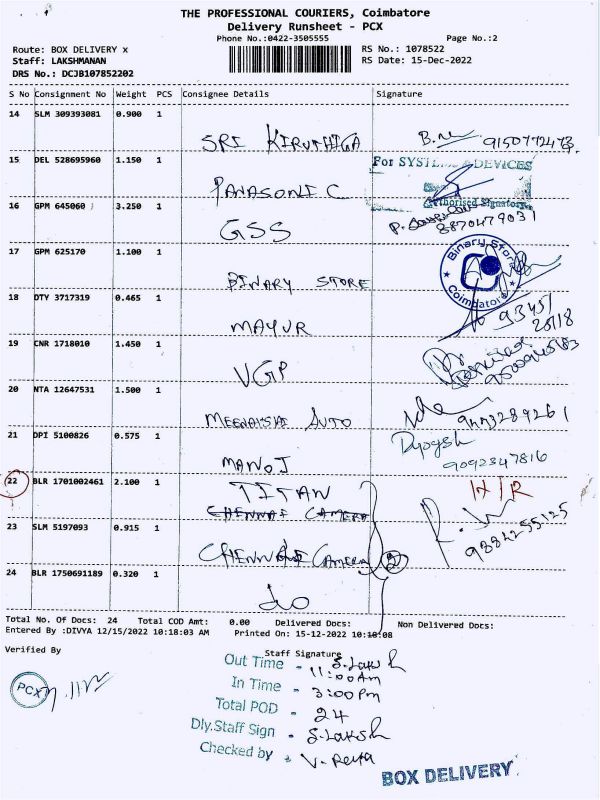 THE PROFESSIONAL COURIERS, Coimbatore
Delivery Runsheet - PCX
Phone No.:0422-3505555
Page No.:2
Route: BOX DELIVERY x
RS No.: 1078522
Staff: LAKSHMANAN
RS Date: 15-Dec-2022
DRS No.: DCJB107852202
S No Consignment No Weight PCS Consignee Details Signature
14 SLM 309393081 0.900 1
SRI KIRUTHIGA 9150772473
15 DEL 528695960 1.150 1
For SYSTEMS & DEVICES
PANASONIC
Authorised Signatory
16 GPM 645060 3.250 1
GSS 8870479031
17 GPM 625170 1.100 1
Binary Store
Coimbatore
BINARY STORE
18 DTY 3717319 0.465 1
93451
MAYUR
19 CNR 1718010 1.450 1
VGP
20 NTA 12647531 1.500 1
MEENAKSHI AUTO
21 DPI 5100826 0.575 1
MANOJ 9092347816
22 BLR 1701002461 2.100 1
TITAN
CHENNAI CAMERA
23 SLM 5197093 0.915 1
9884255125
CHENNAI CAMERA 2
24 BLR 1750691189 0.320 1
do
Total No. Of Docs: 24 Total COD Amt: 0.00 Delivered Docs: Non Delivered Docs:
Entered By :DIVYA 12/15/2022 10:18:03 AM Printed On: 15-12-2022 10:18:08
Verified By
Staff Signature
PCX
Out Time - 11:00 Am
In Time - 3:00 Pm
Total POD - 24
Dly.Staff Sign - S.Laksh
Checked by -
BOX DELIVERY